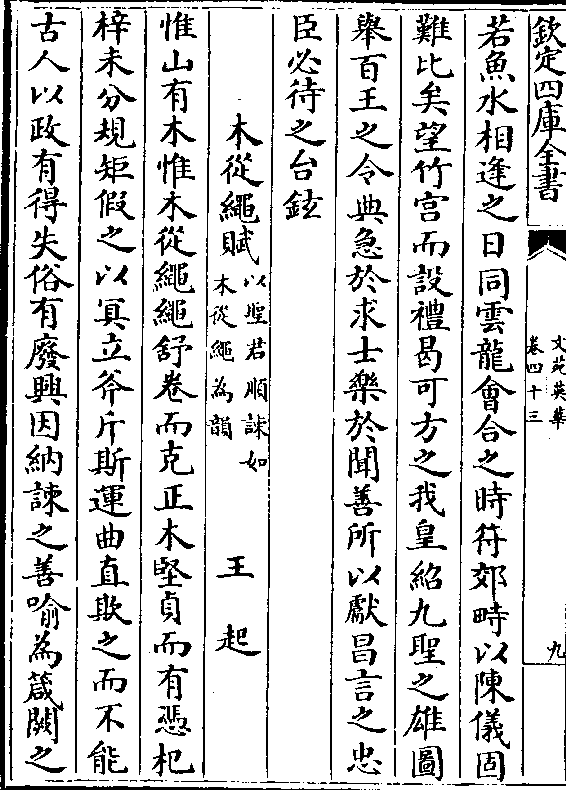 欽定四庫全書
文苑英華
卷四十三
九
若魚水相逢之日同雲龍會合之時符郊畤以陳儀固
難比矣望竹宫而設禮曷可方之我皇紹九聖之雄圖
舉百王之令典急於求士樂於聞善所以獻昌言之忠
臣必待之台鉉
木從繩賦
以聖君順諫如
木從繩為韻
王起
惟山有木惟木從繩繩舒卷而克正木堅貞而有憑杞
梓未分規矩假之以冥立斧斤斯運曲直欺之而不能
古人以政有得失俗有廢興因納諫之善喻為箴闕之